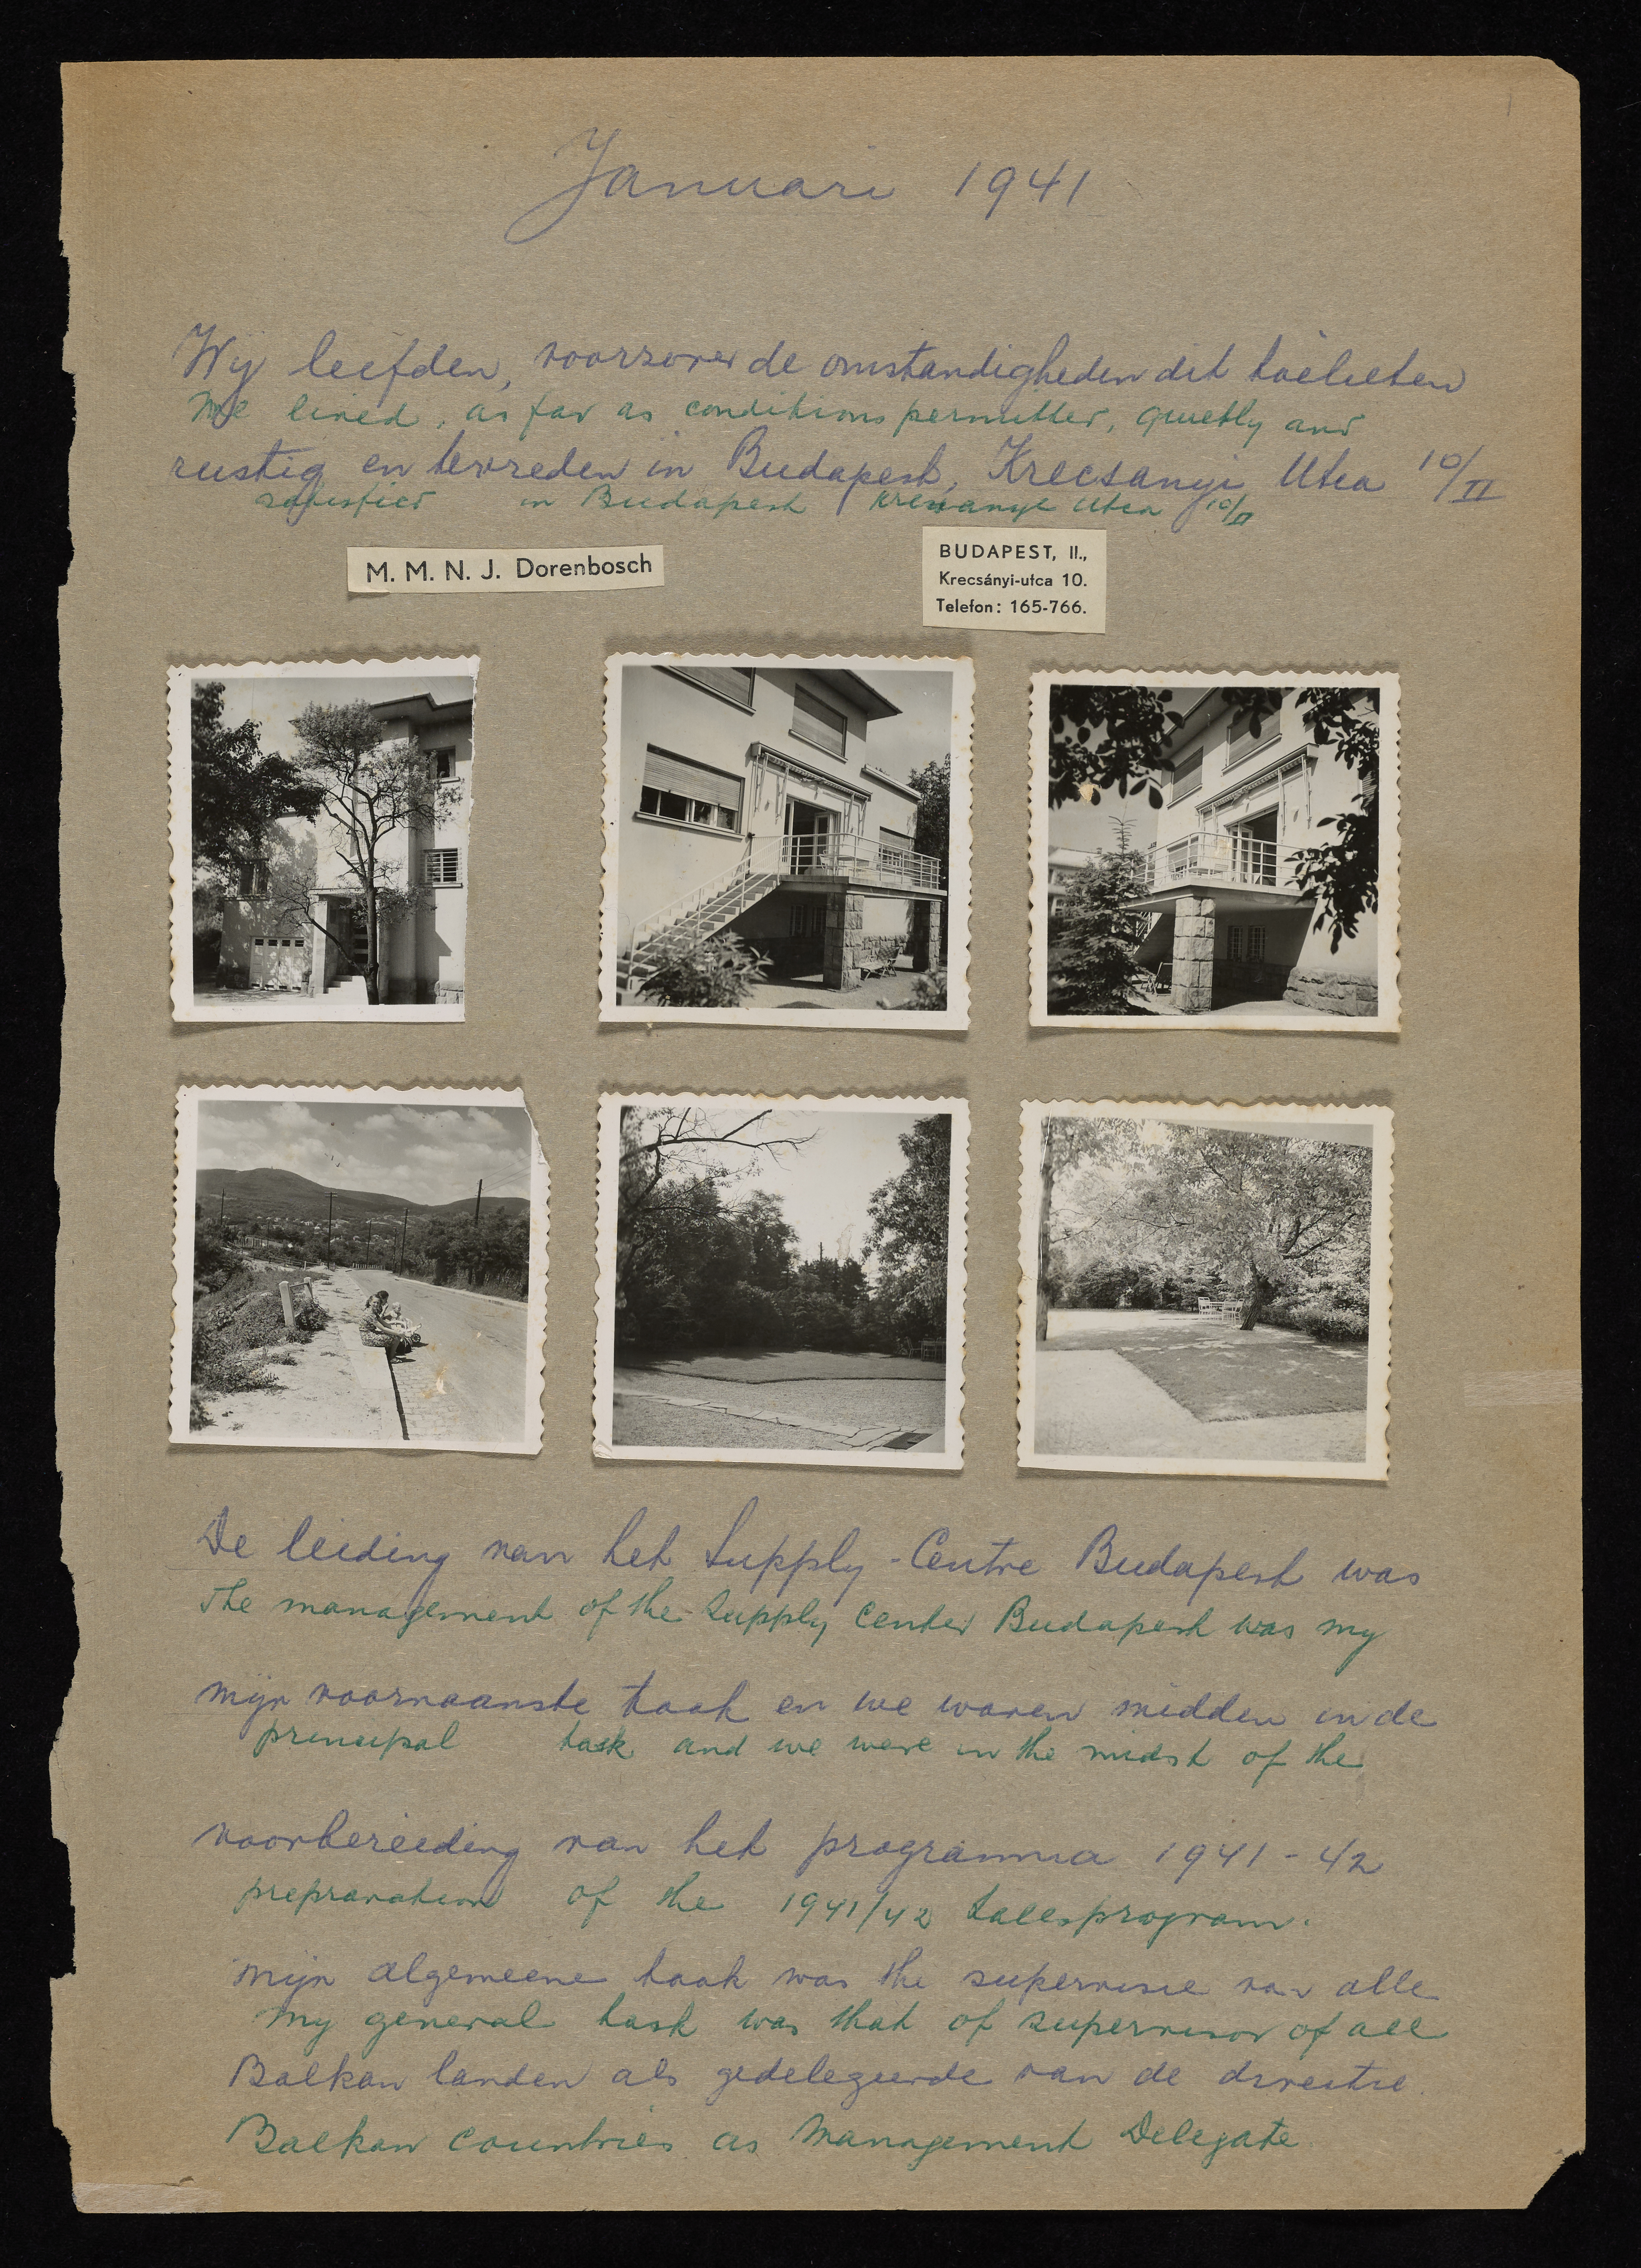 Januari 1941
Wij leefden, voorzover de omstandigheden dit toelieten
We lived, as far as conditions permitted, quietly and
rustig en tevreden in Budapest, Krecsanyi Utca 10/II
satisfied in Budapest Krecsanyi Utca 10/II
M. M. N. J. Dorenbosch
BUDAPEST, II.,
Krecsányi-utca 10.
Telefon: 165-766.
De leiding van het Supply-Centre Budapest was
The management of the Supply Center Budapest was my
mijn voornaamste taak en we waren midden in de
principal task and we were in the midst of the
voorbereiding van het programma 1941-42
prepraration of the 1941/42 salesprogram.
Mijn algemeene taak was the supervisie van alle
My general task was that of supervisor of all
Balkan landen als gedelegeerde van de directie.
Balkan countries as Management Delegate